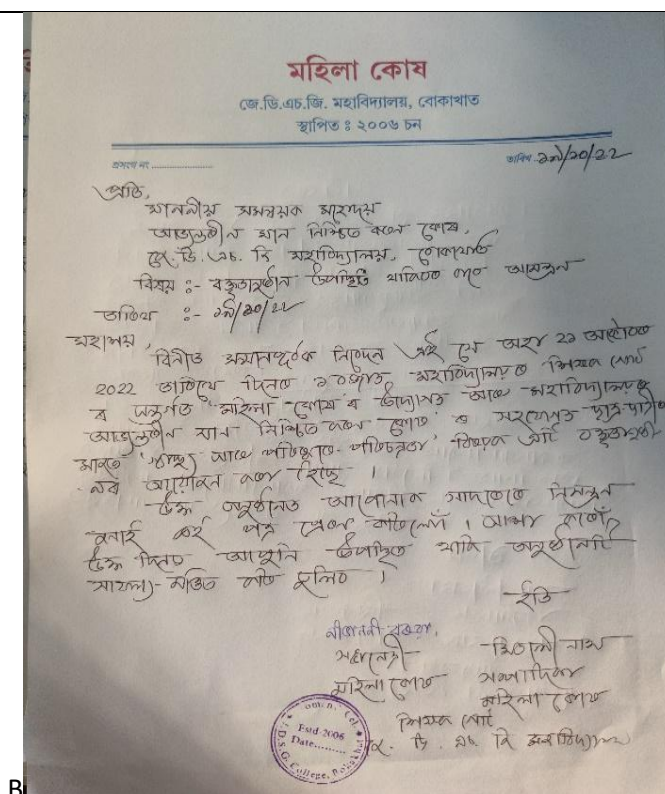 মহিলা কোষ
জে.ডি.এচ.জি. মহাবিদ্যালয়, বোকাখাত
স্থাপিত ঃ ২০০৬ চন
প্ৰসংগ নং
তাৰিখ ১৯/১০/২২
প্ৰতি,
মাননীয় সমন্বয়ক মহোদয়
আভ্যন্তৰীণ মান নিশ্চিত কৰণ কোষ,
জে. ডি. এচ. জি মহাবিদ্যালয়, বোকাখাত
বিষয় :- বক্তৃতানুষ্ঠান উপস্থিত থাকিবলৈ আমন্ত্ৰন
তাৰিখ :- ১৯/১০/২২
মহাশয়,
বিনীত সন্মানপূৰ্বক নিবেদন এই যে অহা ২১ অক্টোবৰ
2022 তাৰিখে দিনৰ মহাবিদ্যালয়ৰ শিক্ষক গোট
ৰ অন্তৰ্গত মহিলা কোষ ৰ উদ্যোগত আৰু মহাবিদ্যালয়ৰ
আভ্যন্তৰীণ মান নিশ্চিত কৰণ কোষ ৰ সহযোগত ছাত্ৰ-ছাত্ৰীৰ
মাজত স্বাস্থ্য আৰু পৰিষ্কাৰ-পৰিচ্ছন্নতা বিষয়ক এটি বক্তৃতানুষ্ঠা
নৰ আয়োজন কৰা হৈছে ।
উক্ত অনুষ্ঠানত আপোনাক সাদৰেৰে নিমন্ত্ৰন
জনাই এই পত্ৰ প্ৰেৰণ কৰিলোঁ । আশা কৰোঁ
উক্ত দিনত আপুনি উপস্থিত থাকি অনুষ্ঠানটি
সাফল্য-মণ্ডিত কৰি তুলিব ।
ইতি
সভানেত্ৰী
মহিলা কোষ
মিতালী নাথ
সম্পাদিকা
মহিলা কোষ
শিক্ষক গোট
জে. ডি. এচ জি মহাবিদ্যালয়
Estd-2006
Date
J.D.S.G. College, Bokakhat
B